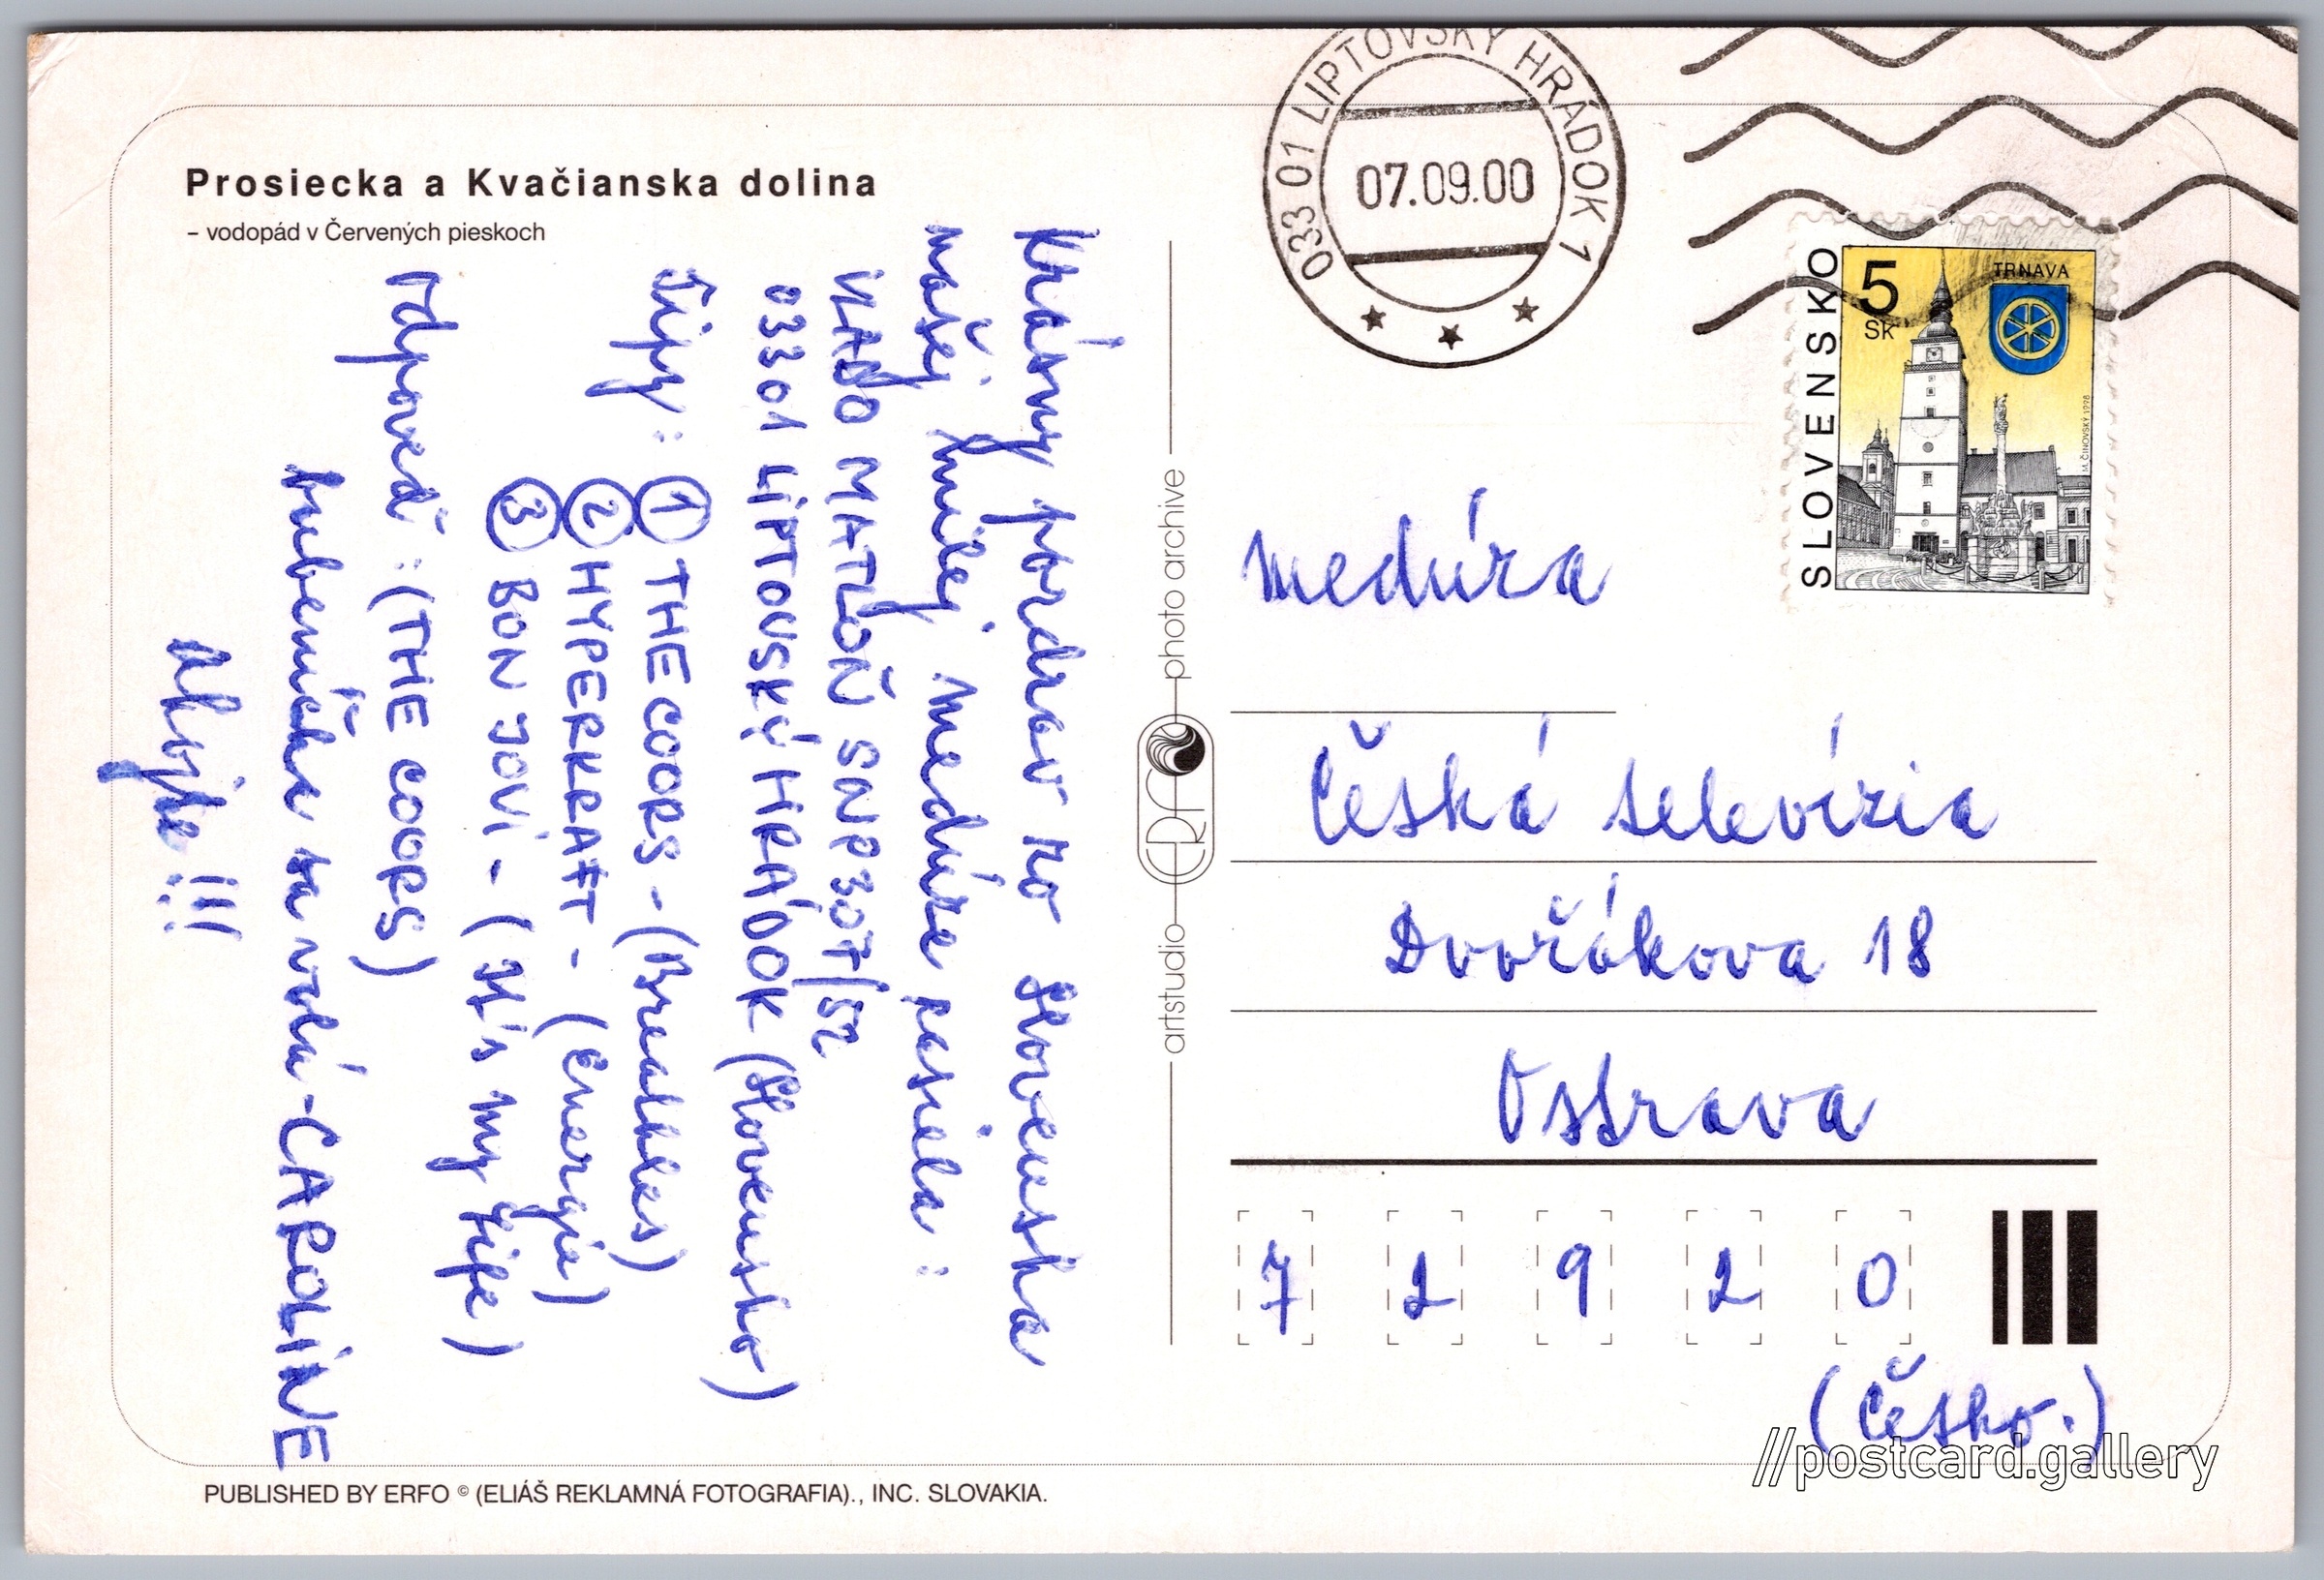 Prosiecka a Kvačianska dolina
– vodopád v Červených pieskoch
Krásny pozdrav zo Slovenska
našej milej medúze posiela:
VLADO MATLOŇ SNP 307/52
03301 LIPTOVSKÝ HRÁDOK (Slovensko)
Tipy: ① THE COORS - (Breathles)
② HYPERKRAFT - (Energia)
③ BON JOVI - (It's my life)
Odpoveď: (THE COORS)
bubeníčka sa volá - CAROLINE
ahojte !!!
PUBLISHED BY ERFO © (ELIÁŠ REKLAMNÁ FOTOGRAFIA)., INC. SLOVAKIA.
artstudio ERFO photo archive
033 01 LIPTOVSKÝ HRÁDOK 1
07.09.00
SLOVENSKO
5 Sk
TRNAVA
M. ČINOVSKÝ 1998
medúza
Česká televízia
Dvořákova 18
Ostrava
7 2 9 2 0
(Česko.)
//postcard.gallery